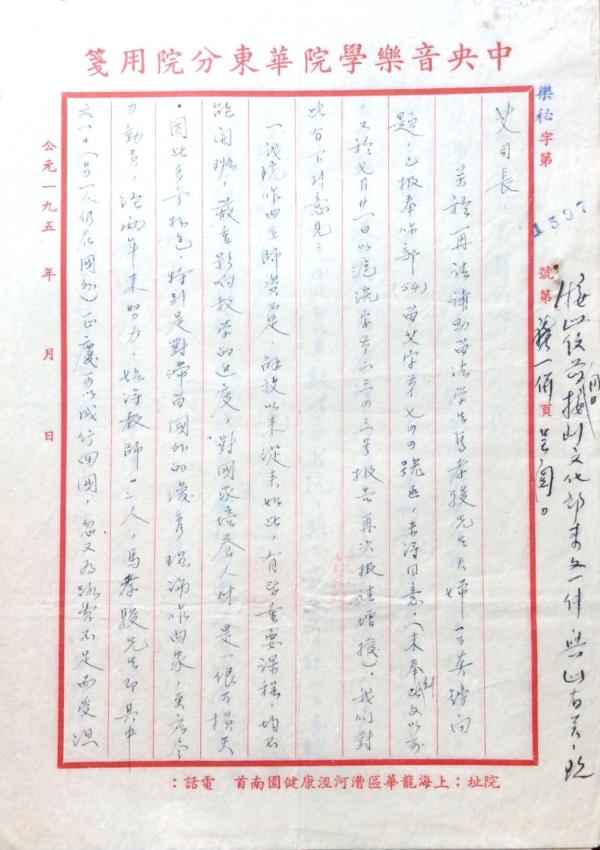 中央音樂學院華東分院用箋
樂秘字第 1507 號第 頁
艾司長：
關於再請補助留法學生馬孝駿先生夫婦一百英鎊問
題，已報奉部（54）留艾字第七四四號函，未得同意，（未奉此文以前
，又於七月廿一日以滬院字第二三四三号報告再次報請增撥），我們對
此有下列意見：
一、我院作曲系師資不足，解放以来從未如此，有些重要課程，均不
能開班，嚴重影响教学的进度，對國家培養人材是一很大損失
，因此多方物色，特別是對滯留國外的優秀理論作曲家，更應大
力動員，經兩年来努力，始得教師一二人，馬孝駿先生即其中
之一（另一人仍在國外）正慶可以成行回國，忽又為路費不足而受阻
公元一九五 年 月 日
接此 文化部来文一件與此有关，
一併呈閱。
院址：上海龍華區漕河涇康健園南首 電話：